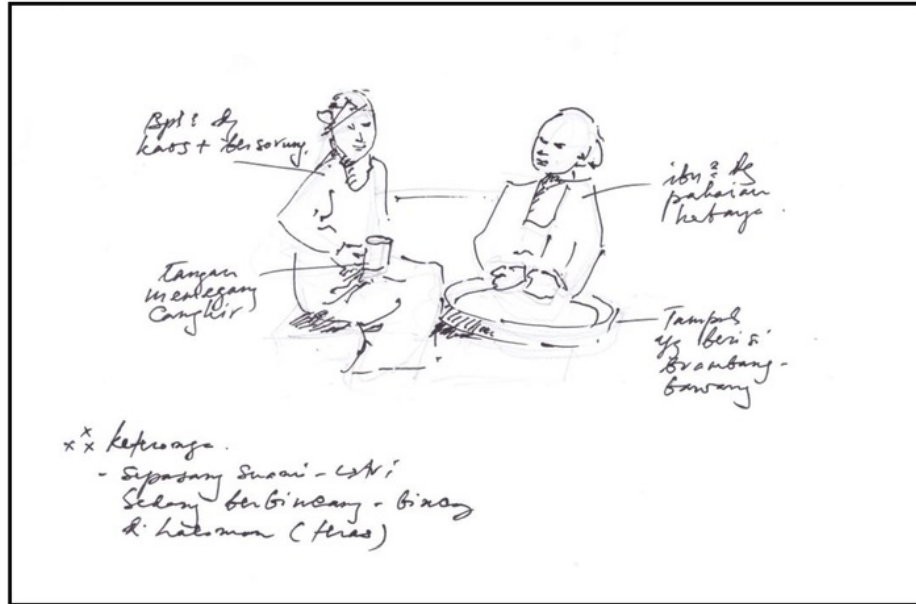 Bpk² dg
kaos + bersarung.
ibu² dg
pakaian
kebaya.
Tangan
memegang
cangkir
Tampah
yg berisi
brambang -
bawang
keterangan.
- sepasang suami - istri
sedang berbincang - bincang
di halaman (teras)